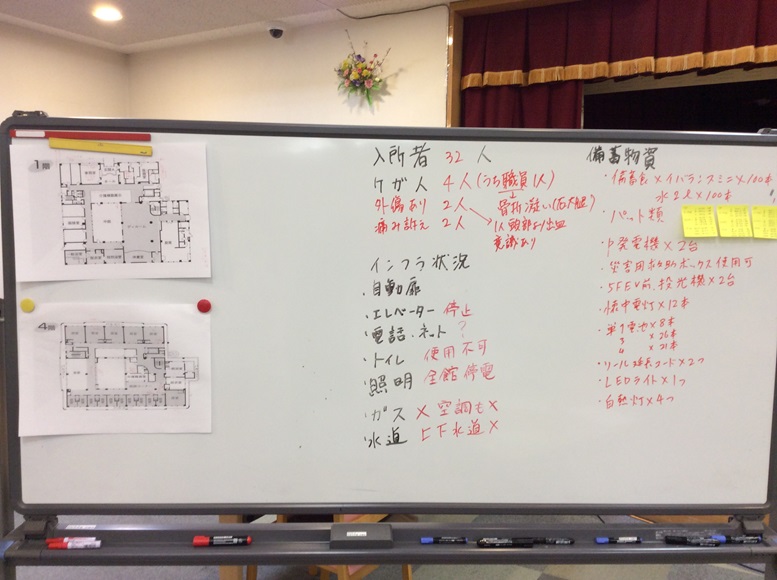 1階
4階
入所者 32 人
ケガ人 4人(うち職員1人)
外傷あり 2人 骨折疑い(右大腿)
痛み訴え 2人 1人頭部より出血
意識あり
インフラ状況
・自動扉
・エレベーター 停止
・電話・ネット ?
・トイレ 使用不可
・照明 全館停電
・ガス × 空調も×
・水道 上下水道×
備蓄物資
・備蓄食×イバランスミニ×100本
水2ℓ×100本
・パット類
・発電機×2台
・災害用救助ボックス使用可
・5FEV前、投光機×2台
・懐中電灯×12本
・単1電池×8本
3 ×26本
4 ×21本
・リール延長コード×2つ
・LEDライト×1つ
・白熱灯×4つ